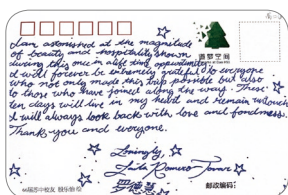 I am astonished at the magnitude
of beauty and hospitality shown
during this once in a life time opportunity.
I will forever be extremely grateful to everyone
who not only made this trip possible but also
to those who have joined along the way. These
ten days will live in my heart and remain untouch
I will always look back with love and fondness.
Thank you and everyone.
Lovingly,
Romero
造梦空间
邮政编码：